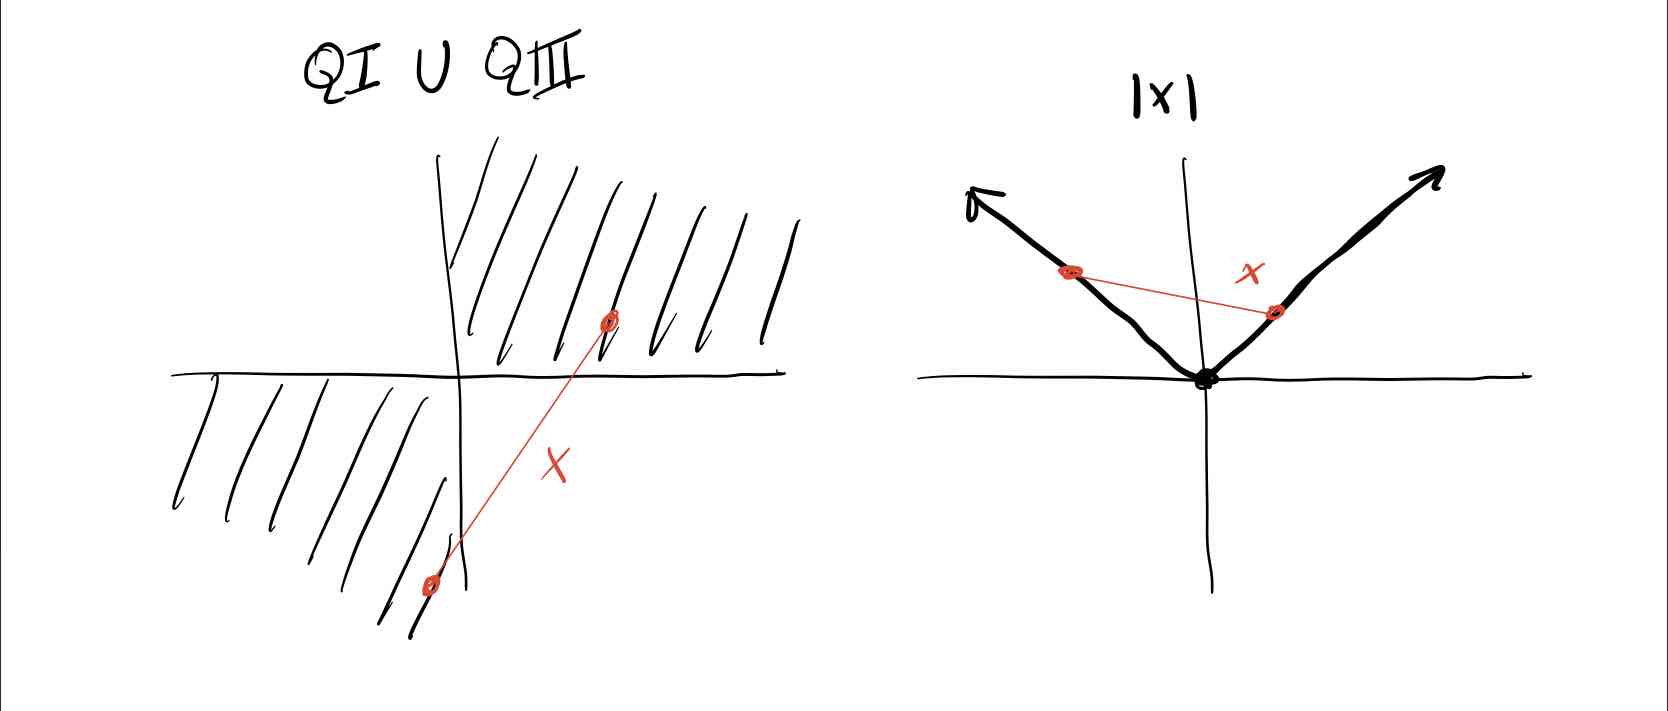 QI ∪ QIII
|x|
x
x